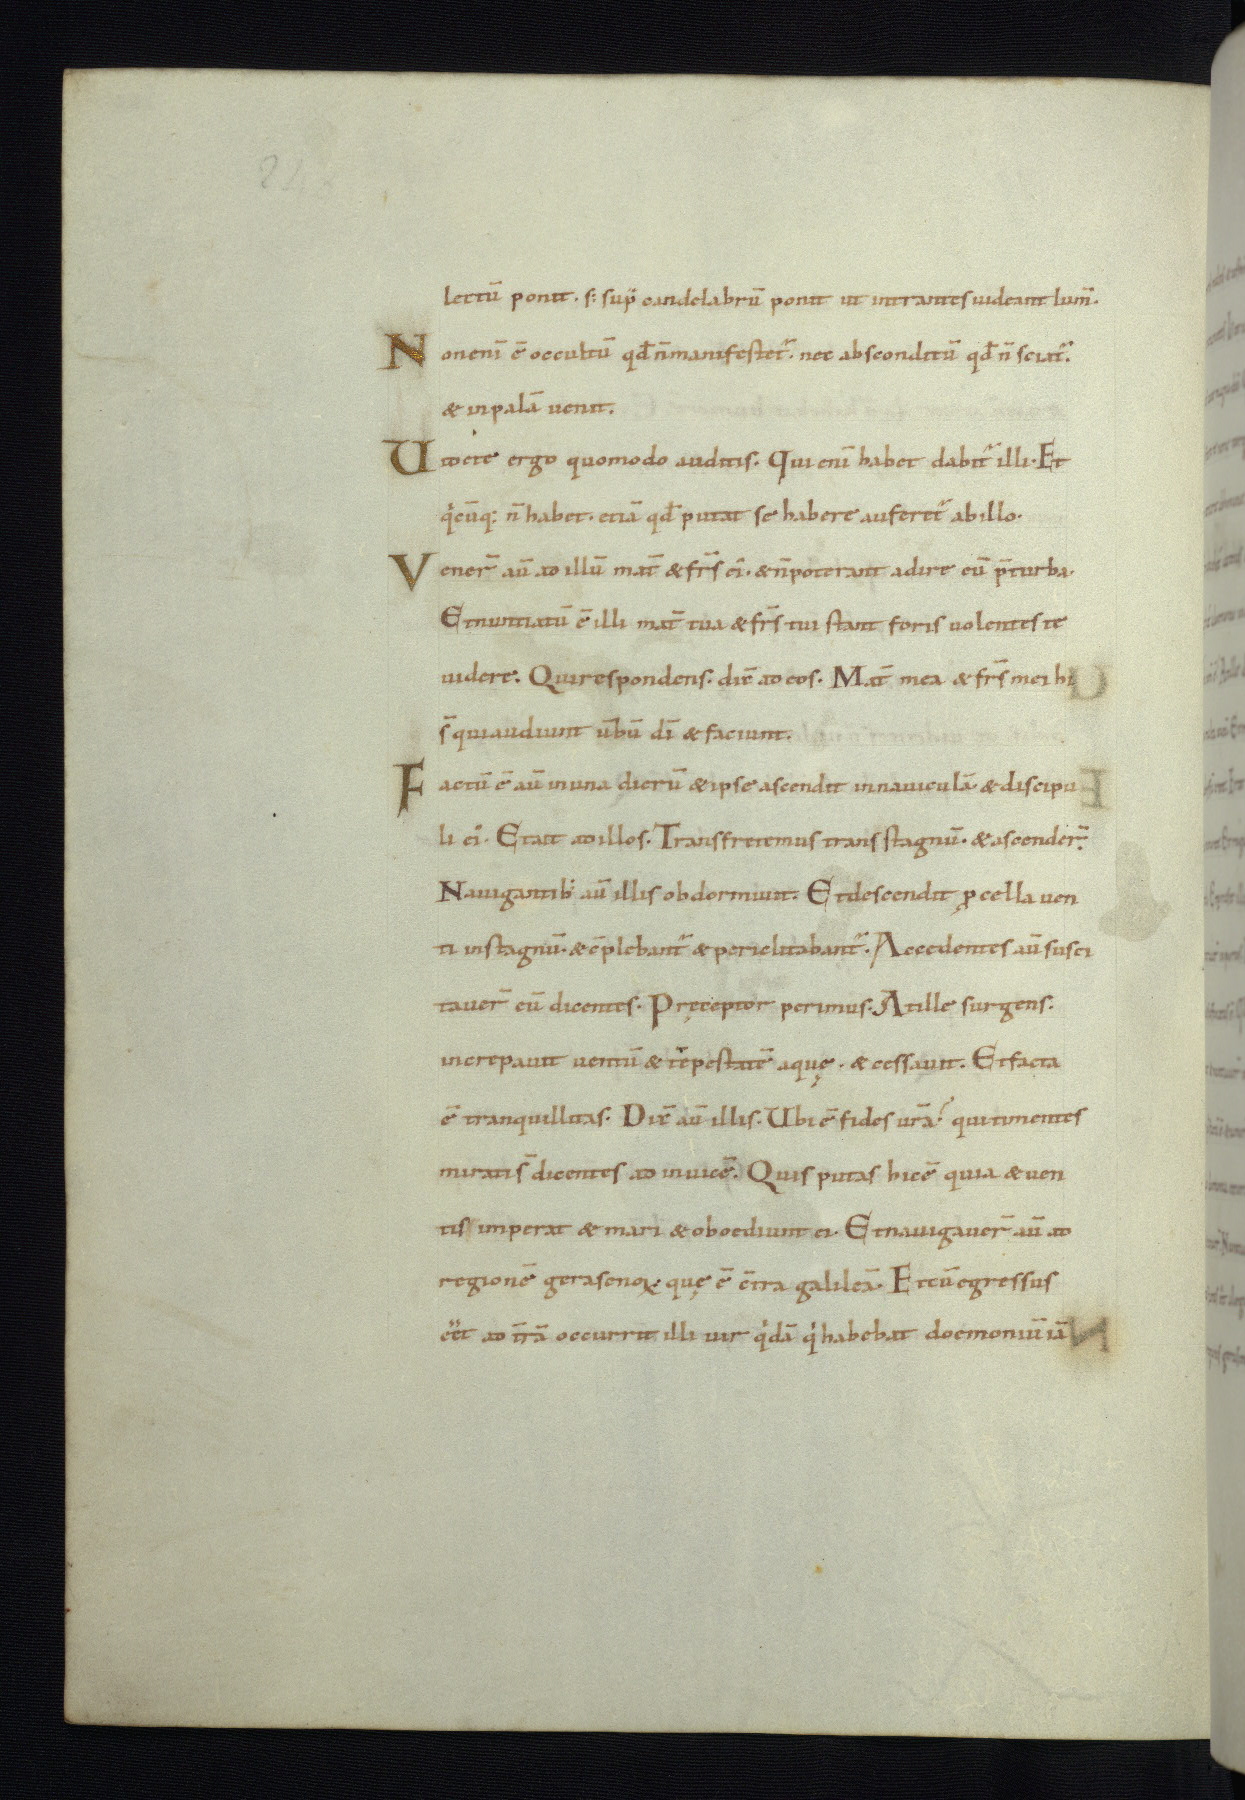 lectū ponit. s: sup̄ candelabrū ponit ut intrantes uideant lum̄.
Non enī ē occultū qđ n̄ manifestet᷑. nec absconditū qđ n̄ sciat᷑.
& in palā uenit.
Uidete ergo quomodo auditis. Qui enī habet dabit᷑ illi. Et
q̍cūq; n̄ habet. etiā qđ putat se habere auferet᷑ ab illo.
Vener̄ aū ad illū mat̄ & fr̄s ei᷒. & n̄ poterant adire eū p̄ turba.
Et nuntiatū ē illi mat̄ tua & fr̄s tui stant foris uolentes te
uidere. Qui respondens. dix̄ ad eos. Mat̄ mea & fr̄s mei hi
s̄ qui audiunt ūbū dī & faciunt.
Factū ē aū in una dierū & ipse ascendit in nauiculā. & discipu
li ei᷒. Et ait ad illos. Transfretemus trans stagnū. & ascender̄.
Nauigantib᷒ aū illis obdormiuit. Et descendit ꝓcella uen
ti in stagnū. & cōplebant᷑ & periclitabant᷑. Accedentes aū susci
tauer̄ eū dicentes. Pręceptor perimus. At ille surgens.
increpauit uentū & tēpestatē aquę. & cessauit. Et facta
ē tranquillitas. Dix̄ aū illis. Ubi ē fides ur̄a? qui timentes
mirati s̄ dicentes ad inuicē. Quis putas hic ē quia & uen
tis imperat & mari & oboediunt ei. Et nauigauer̄ aū ad
regionē gerasenoꝝ quę ē c̄tra galileā. Et cū egressus
eēt ad tr̄ā occurrit illi uir q̍dā q̍ habebat doemoniū iā